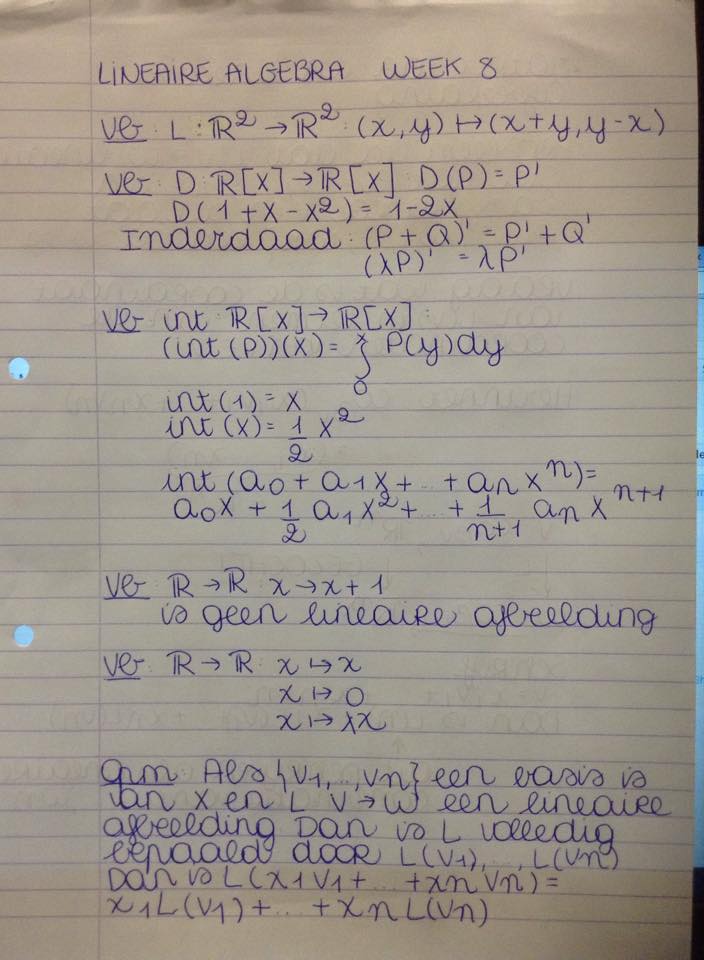 LINEAIRE ALGEBRA WEEK 8
Vb: L: ℝ² → ℝ²: (x,y) ↦ (x+y, y-x)
Vb: D: ℝ[X] → ℝ[X]: D(P) = P'
D(1+X-X²) = 1-2X
Inderdaad: (P+Q)' = P' + Q'
(λP)' = λP'
Vb: int: ℝ[X] → ℝ[X]:
(int(P))(X) = ∫₀ˣ P(y)dy
int(1) = X
int(X) = 1/2 X²
int(a₀ + a₁X + ... + aₙXⁿ) =
a₀X + 1/2 a₁X² + ... + 1/(n+1) aₙXⁿ⁺¹
Vb: ℝ → ℝ: x → x+1
is geen lineaire afbeelding
Vb: ℝ → ℝ: x ↦ x
x ↦ 0
x ↦ λx
Opm: Als {v₁,...,vₙ} een basis is
van X en L: V → W een lineaire
afbeelding Dan is L volledig
bepaald door L(v₁), ..., L(vₙ)
Dan is L(x₁v₁ + ... + xₙvₙ) =
x₁L(v₁) + ... + xₙL(vₙ)